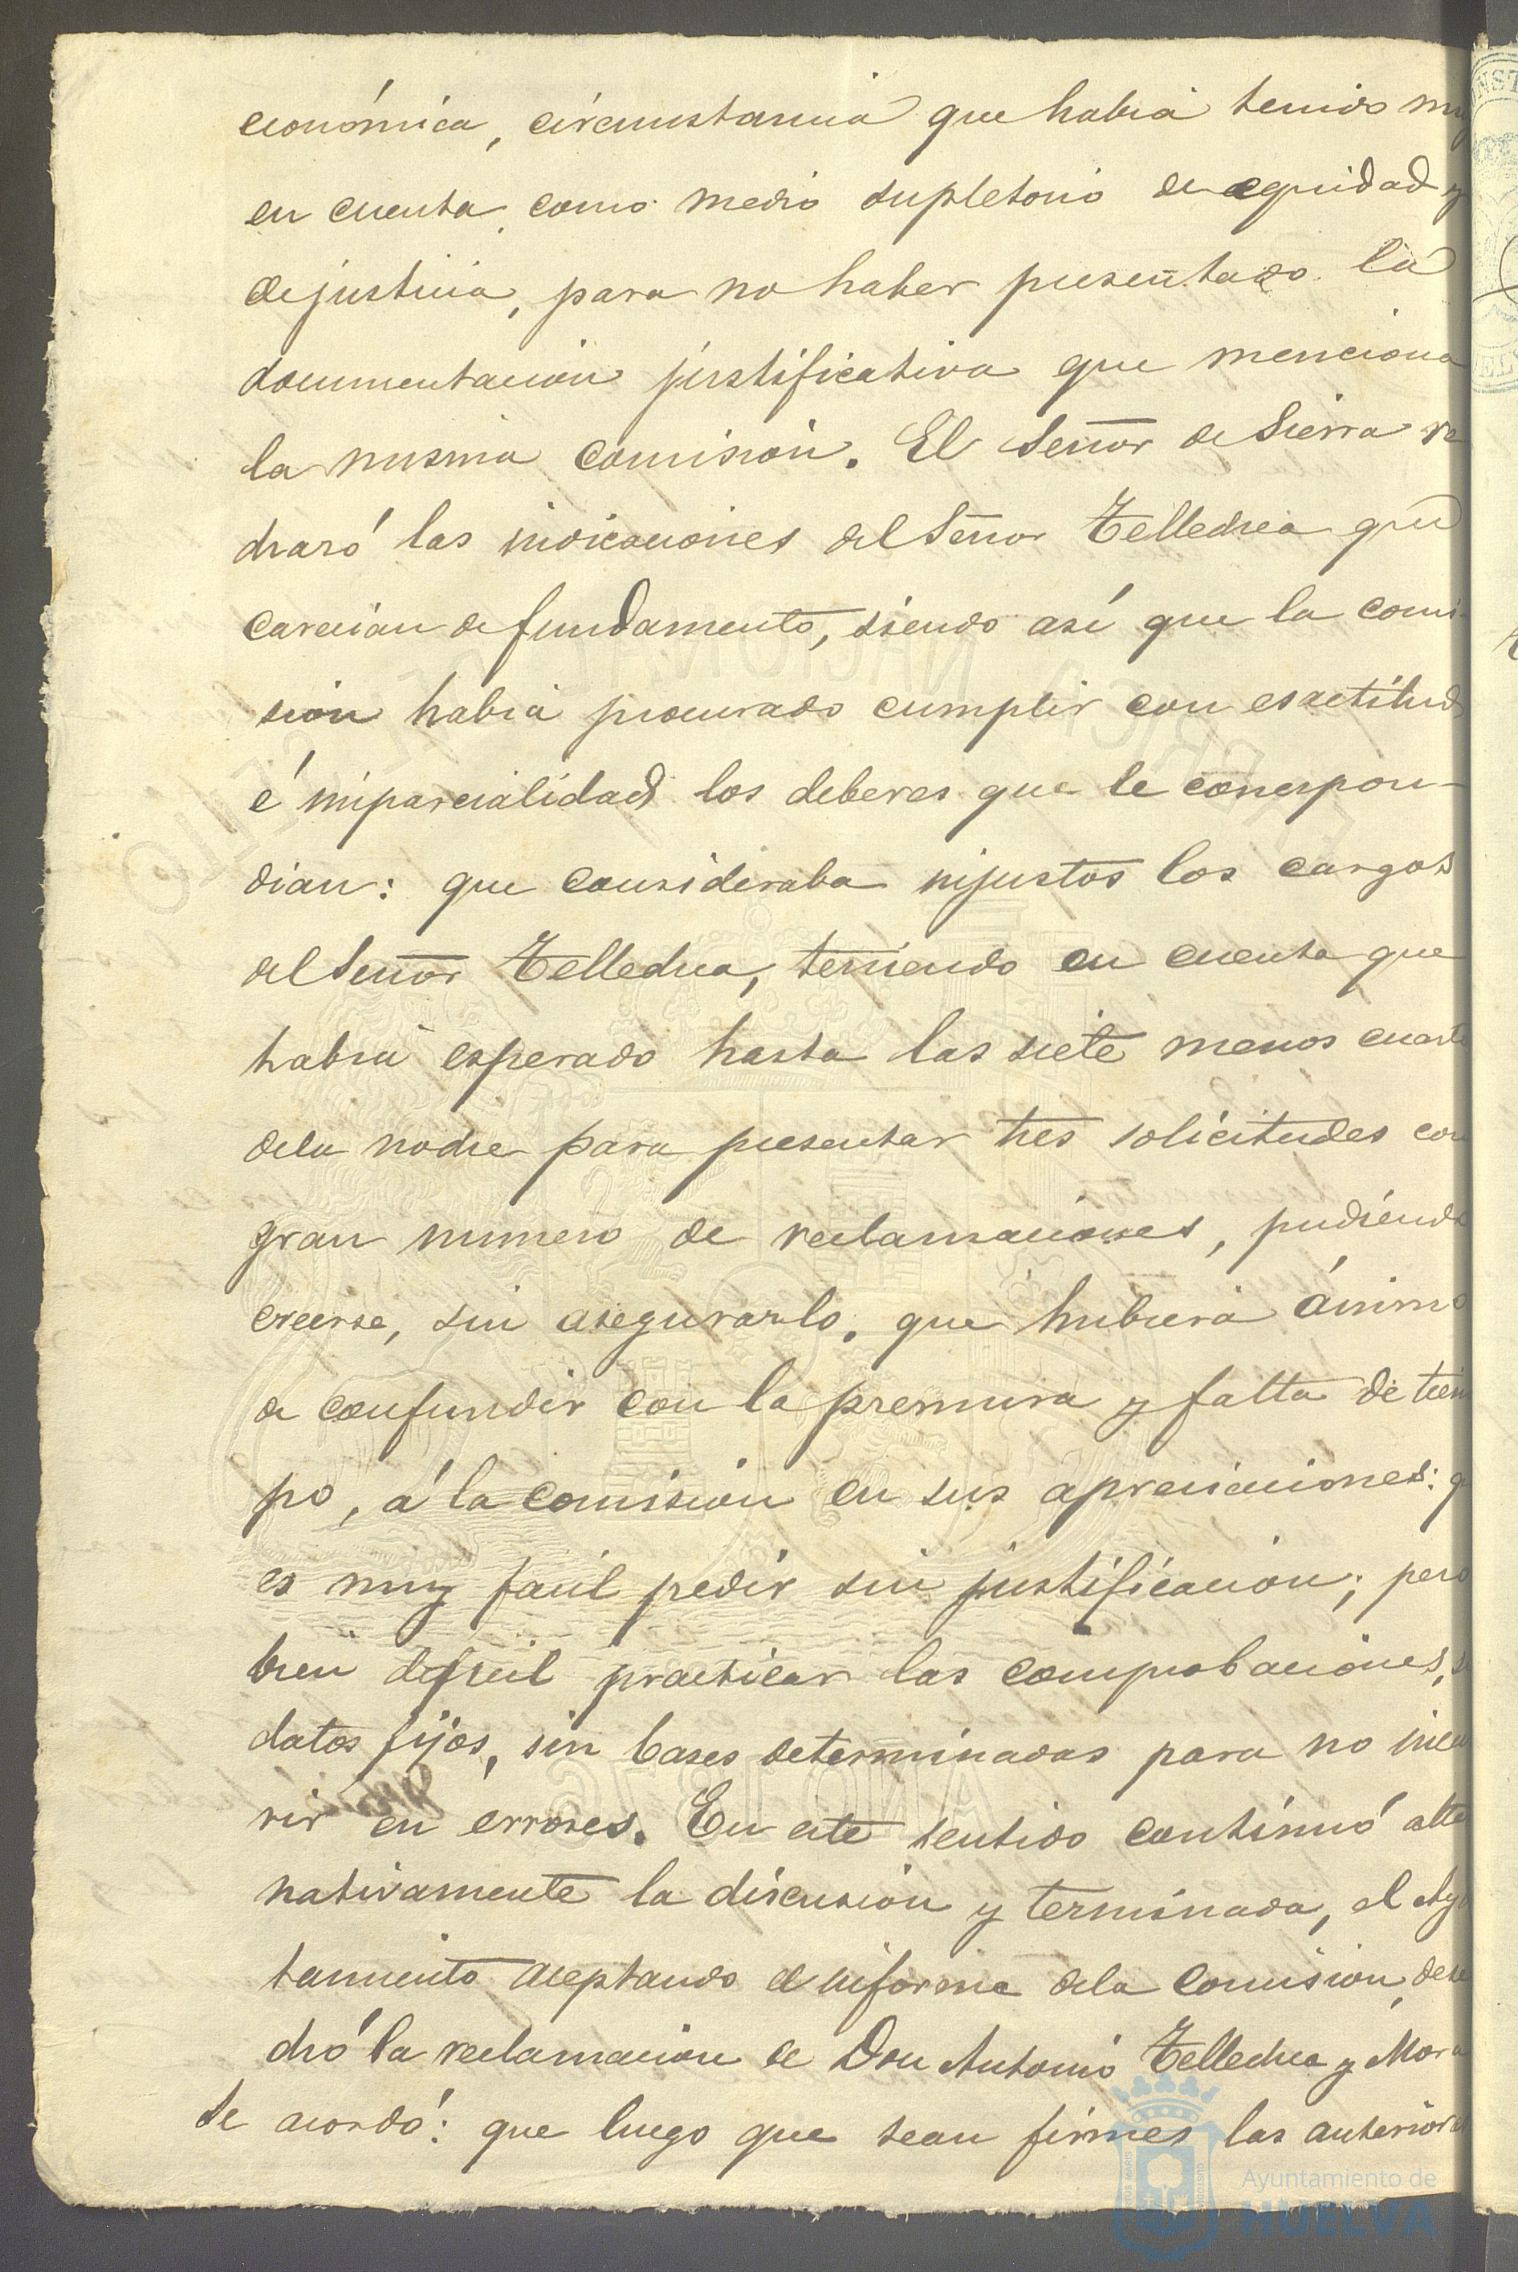 económica, circunstancia que habia tenido muy
en cuenta, como medio supletorio de equidad y
de justicia, para no haber presentado la
documentacion justificativa que menciona
la misma comision. El Señor de Sierra re
chazó las indicaciones del Señor Tellechea que
carecian de fundamento, siendo así que la comi-
sion habia procurado cumplir con esactitud
é imparcialidad los deberes que le correspon-
dian: que consideraba injustos los cargos
del Señor Tellechea, teniendo en cuenta que
habia esperado hasta las siete menos cuarto
dela noche para presentar tres solicitudes con
gran numero de reclamaciones, pudiendo
creerse, sin asegurarlo, que hubiera ánimo
de confundir con la premura y falta de tiem
po, á la comision en sus apreciaciones: q
es muy facil pedir sin justificacion; pero
bien dificil practicar las comprobaciones, s
datos fijos, sin bases determinadas para no incu
rir en errores. En este sentido continuó alte
nativamente la discusion y terminada, el Ayu
tamiento aceptando el informe dela Comision, dese
chó la reclamacion de Don Antonio Tellechea y Mora
Se acordó: que luego que sean firmes las anteriores
FABRICA NACIONAL DEL SELLO
AÑO 1876
Ayuntamiento de
HUELVA